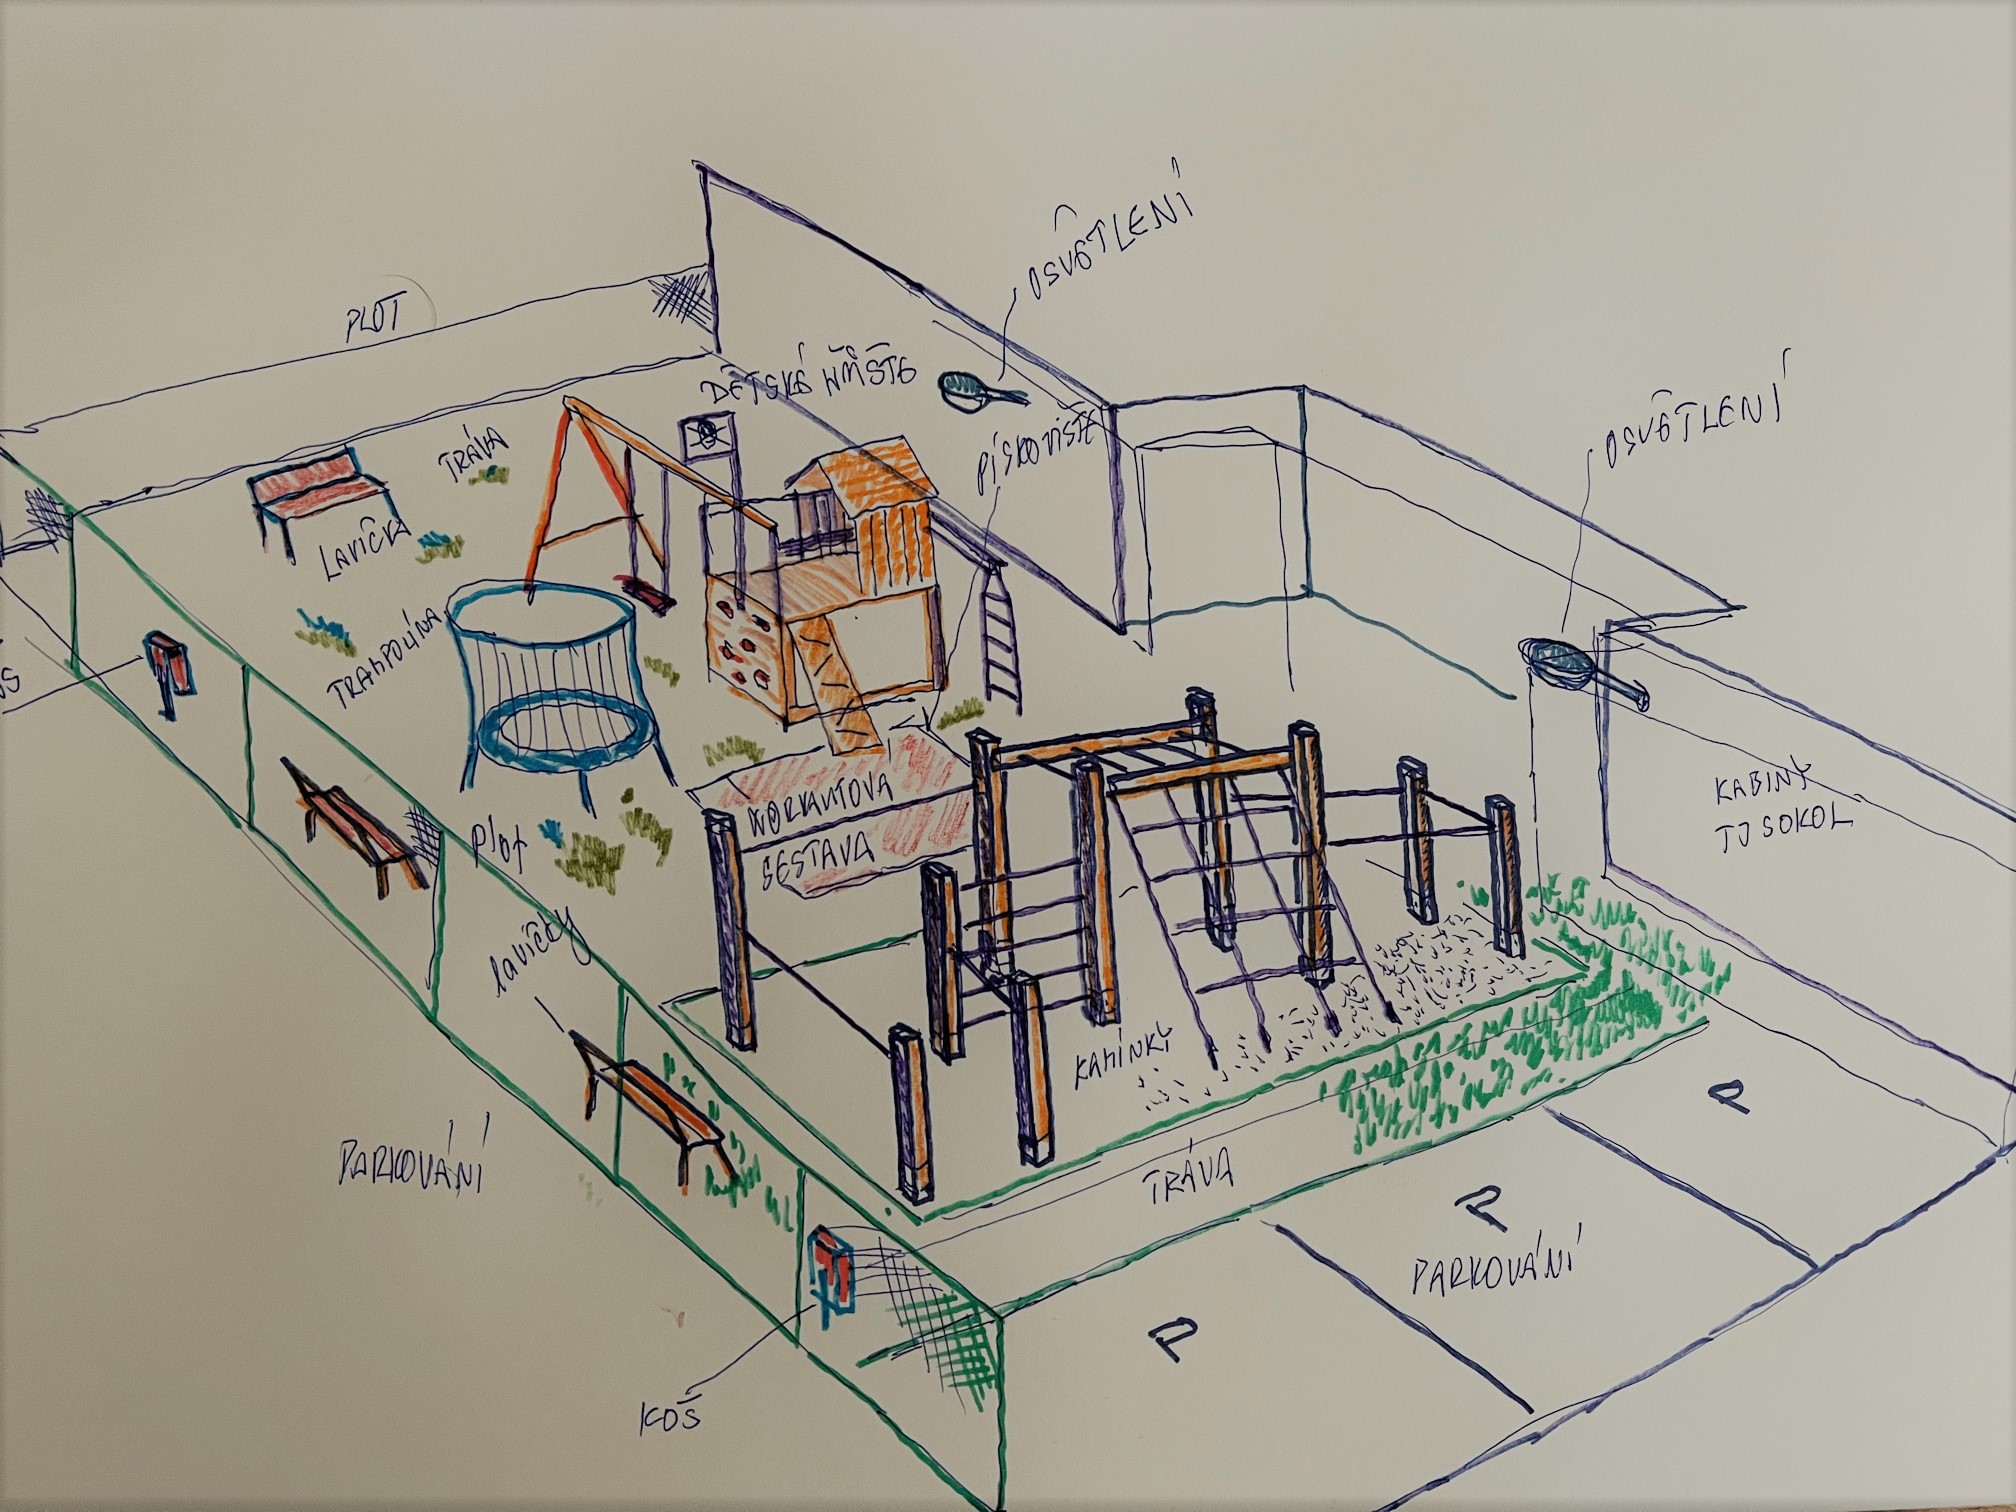 OSVĚTLENÍ
PLOT
DĚTSKÉ HŘIŠTĚ
OSVĚTLENÍ
PÍSKOVIŠTĚ
TRÁVA
LAVIČKA
TRAMPOLÍNA
WORKAUTOVA
SESTAVA
KABINY
TJ SOKOL
Plot
lavičky
KAMÍNKY
PARKOVÁNÍ
TRÁVA
P
P
PARKOVÁNÍ
P
KOŠ